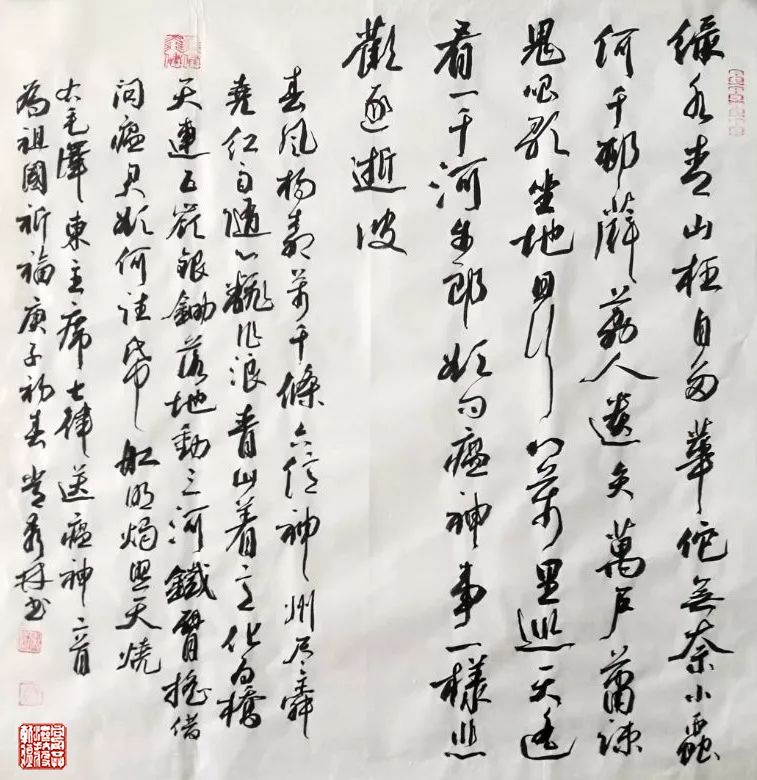 緑水青山枉自多華佗無奈小蟲
何千邨薜荔人遺矢萬户蕭疎
鬼唱歌坐地日行八萬里巡天遥
看一千河牛郎欲问瘟神事一樣悲
歡逐逝波
春風楊柳萬千條六億神州盡舜
堯红雨随心翻作浪青山着意化为橋
天連五嶺銀鋤落地動三河鐵臂摇借
问瘟君欲何往纸船明燭照天烧
右毛澤東主席七律送瘟神二首
為祖國祈福庚子初春秀林书